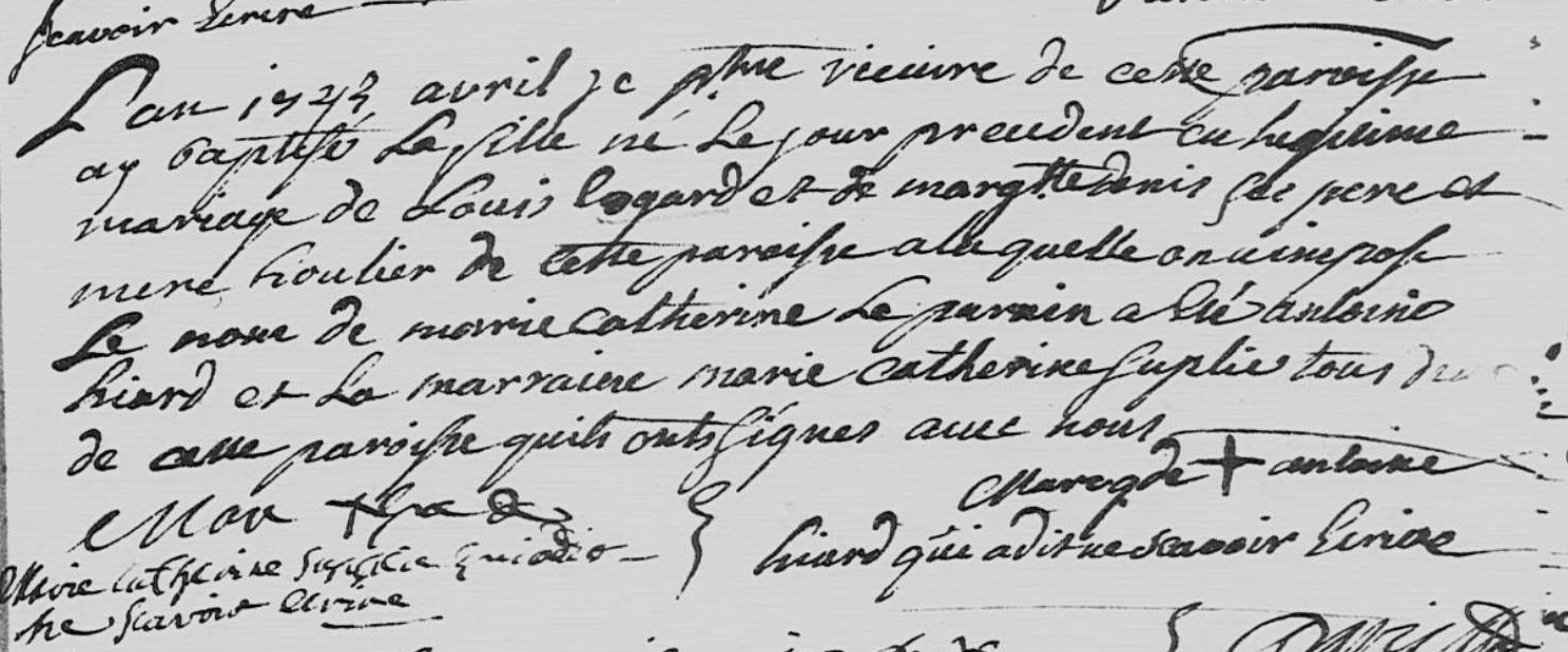 scavoir Ecrire
L'an 1743 avril je ptre vicaire de cette paroisse
ay baptisé La fille né Le jour precedent en legitime
mariage de Louis Logard et de margtte denis ses pere et
mere houlier de cette paroisse a laquelle on a impose
Le nom de marie catherine Le parain a Eté antoine
hiard et La marraine marie catherine Suplie tous deux
de cette paroisse quils onts signes avec nous
Marcq de + antoine
hiard qui a dit ne scavoir Ecrire
Mar + de
Marie catherine Suplie qui a dit
ne scavoir Ecrire